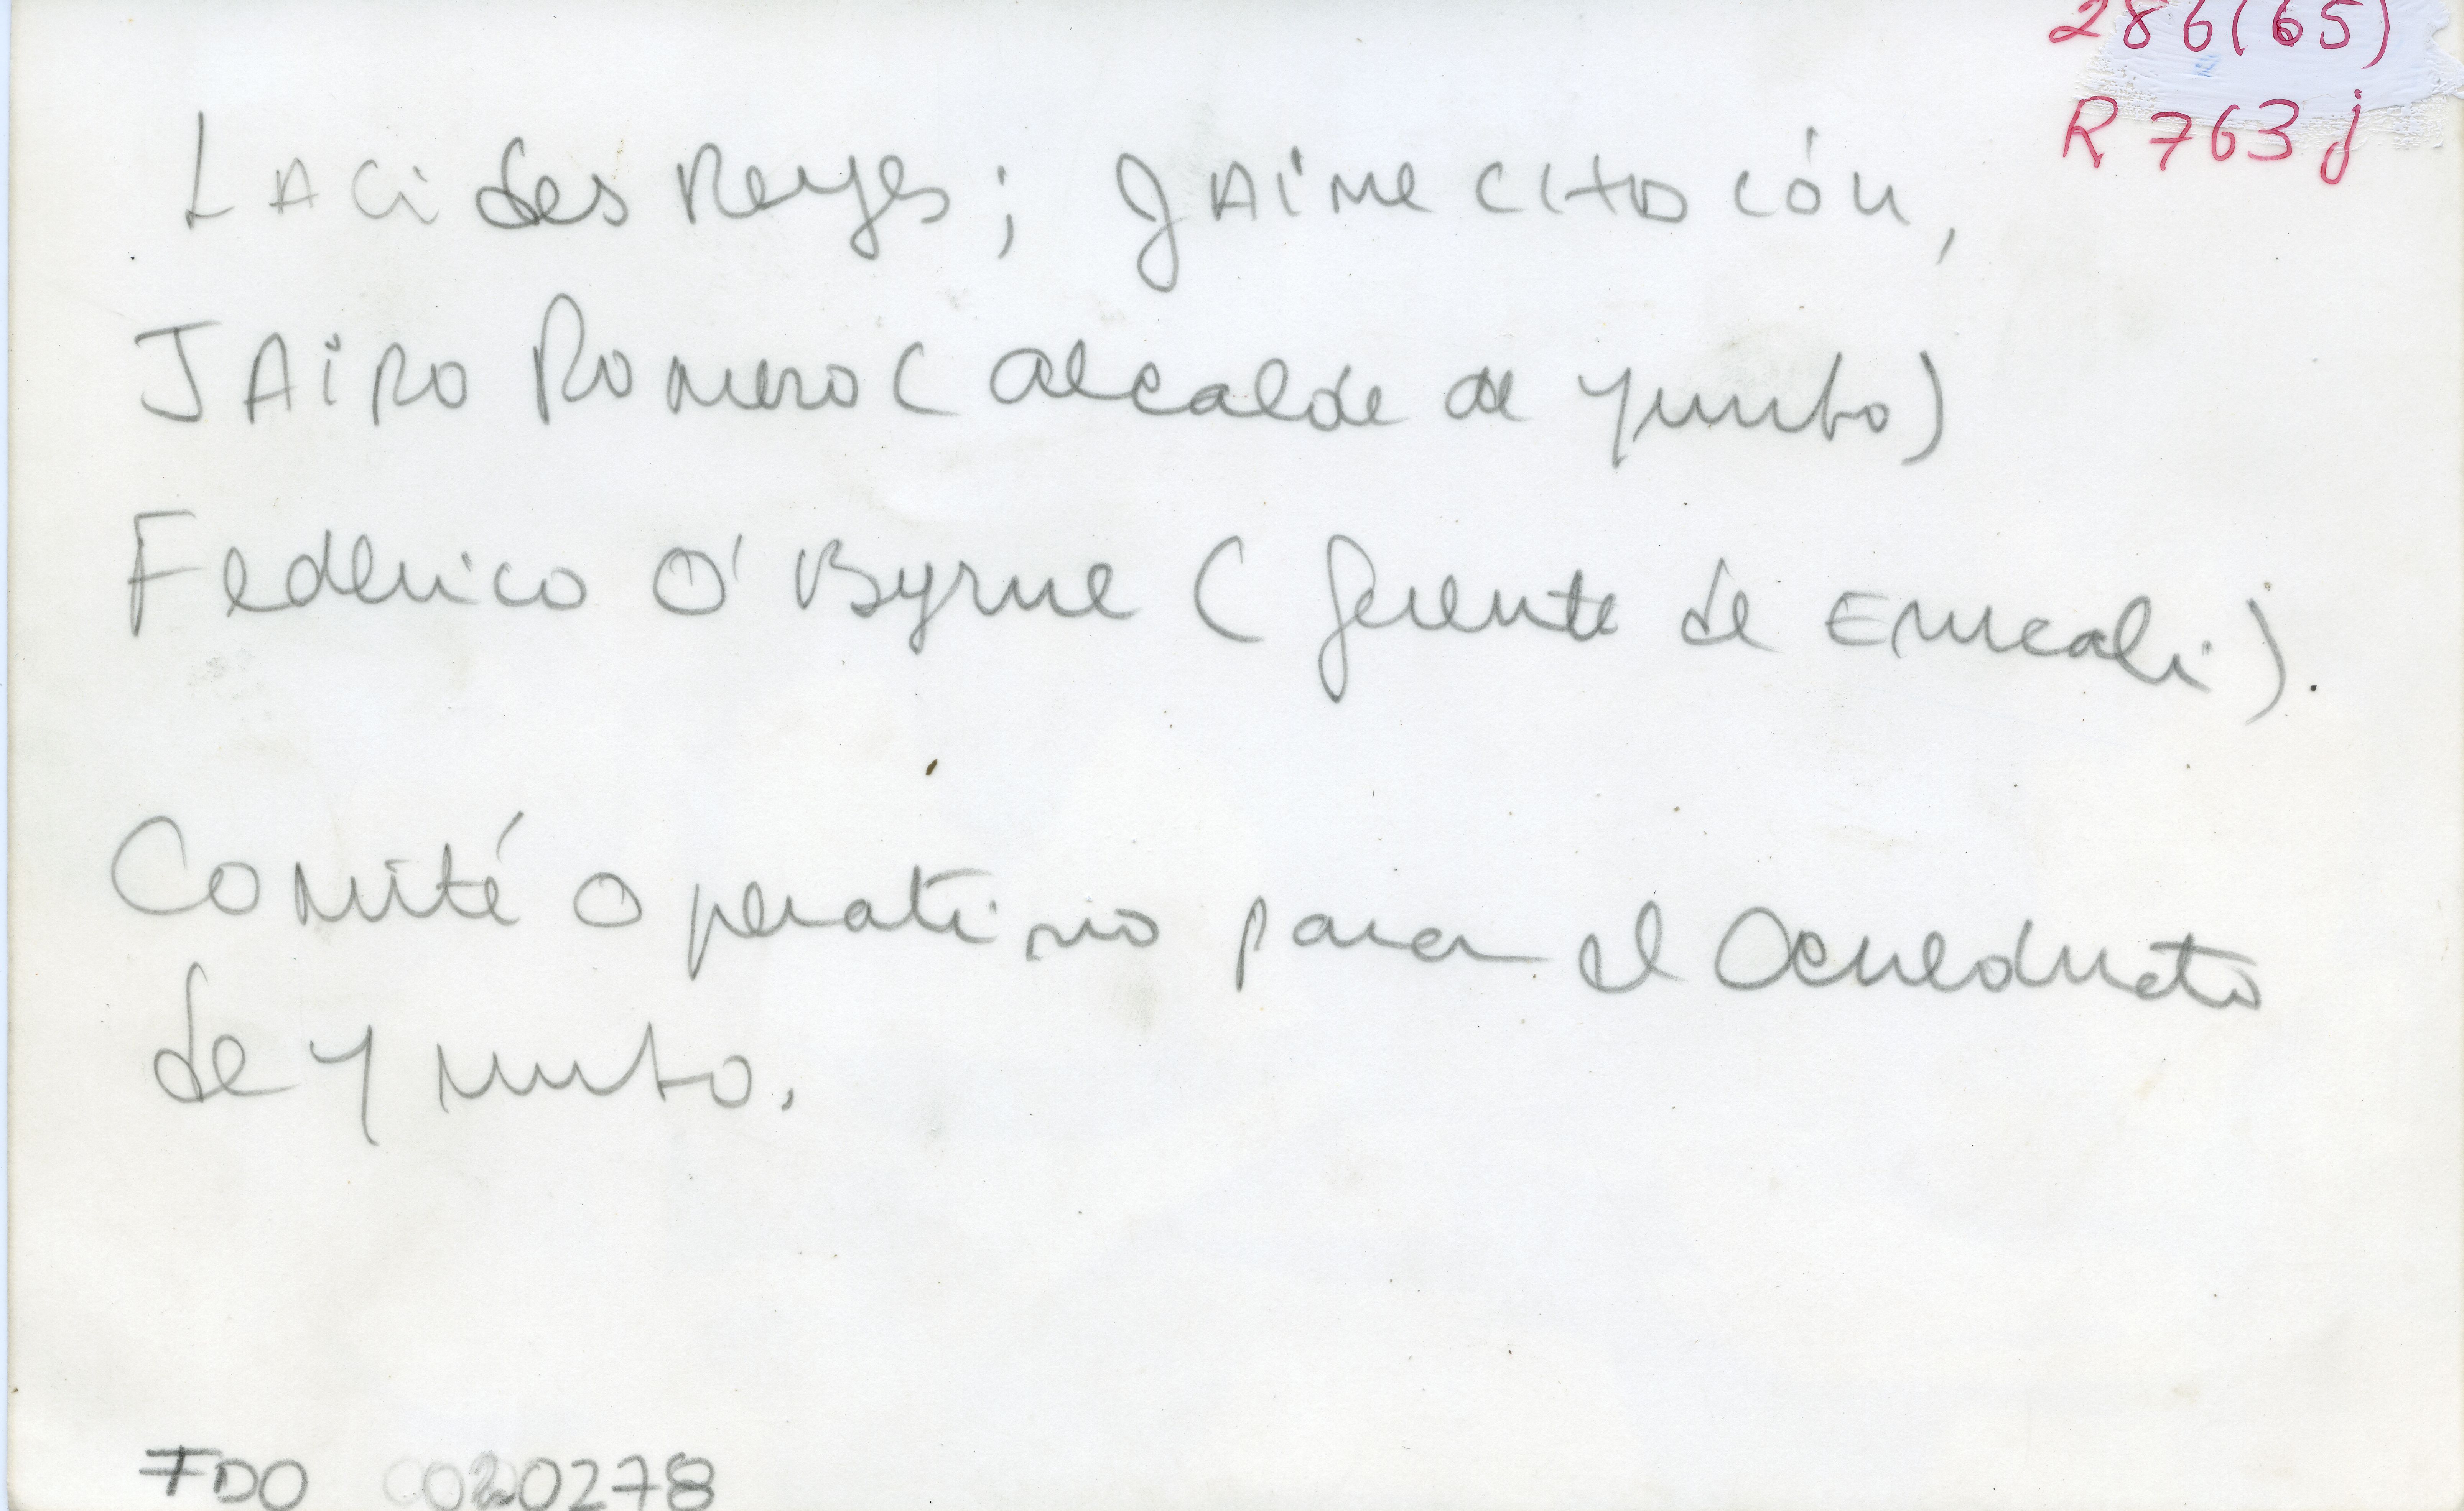 286(65)
R763j
LACides Reyes; JAime CHACÓN,
JAiro Romero (alcalde de Yumbo)
Federico O'Byrne (gerente de Emcali).
Comité Operativo para el Acueducto
de Yumbo.
FDO 0020278